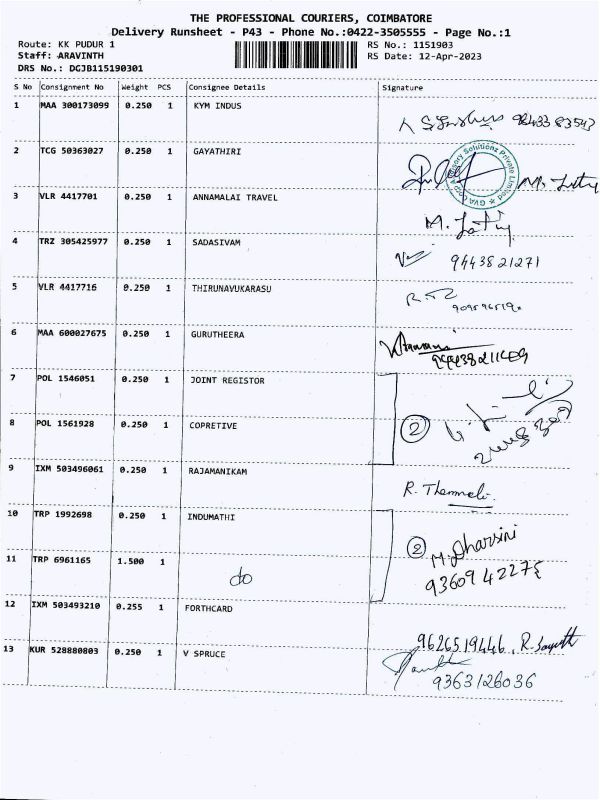 THE PROFESSIONAL COURIERS, COIMBATORE
Delivery Runsheet - P43 - Phone No.:0422-3505555 - Page No.:1
Route: KK PUDUR 1
RS No.: 1151903
Staff: ARAVINTH
RS Date: 12-Apr-2023
DRS No.: DGJB115190301
S No Consignment No Weight PCS Consignee Details Signature
1 MAA 300173099 0.250 1 KYM INDUS
2 TCG 50363027 0.250 1 GAYATHIRI
3 VLR 4417701 0.250 1 ANNAMALAI TRAVEL
4 TRZ 305425977 0.250 1 SADASIVAM
9443821271
5 VLR 4417716 0.250 1 THIRUNAVUKARASU
6 MAA 600027675 0.250 1 GURUTHEERA
7 POL 1546051 0.250 1 JOINT REGISTOR
8 POL 1561928 0.250 1 COPRETIVE
2
9 IXM 503496061 0.250 1 RAJAMANIKAM
10 TRP 1992698 0.250 1 INDUMATHI
2 M. Dharsini
11 TRP 6961165 1.500 1 do
9360942275
12 IXM 503493210 0.255 1 FORTHCARD
9626519446,
13 KUR 528880803 0.250 1 V SPRUCE
9363126036